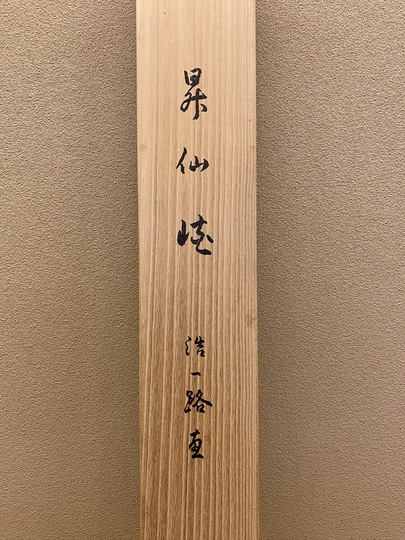 昇仙峡 浩一路画